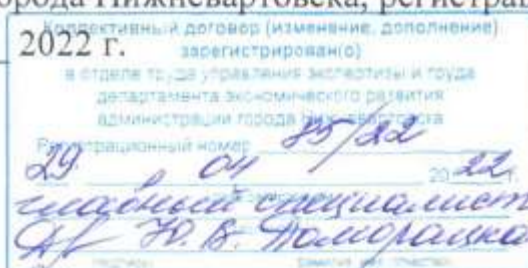 орода Нижневартовска, регистра
2022 г.
Коллективный договор (изменение, дополнение)
зарегистрирован(о)
в отделе труда управления экспертизы и труда
департамента экономического развития
администрации города Нижневартовска
Регистрационный номер 85/22
29 04 2022 г.
главный специалист
Ю. В.